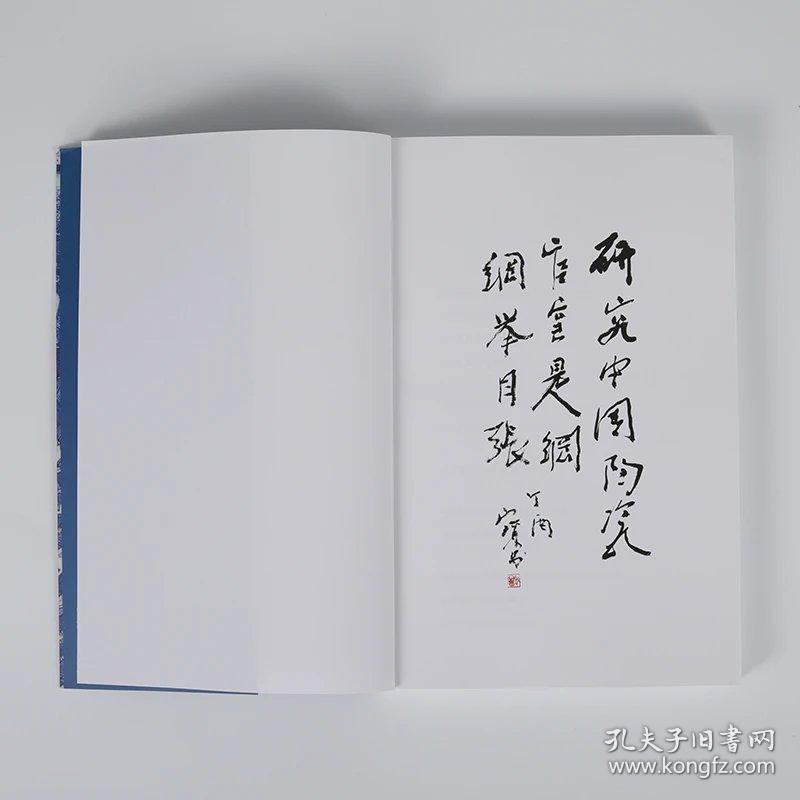 研究中国陶瓷
官窑是綱
綱举目張
丁酉
宝书
孔夫子旧书网
www.kongfz.com